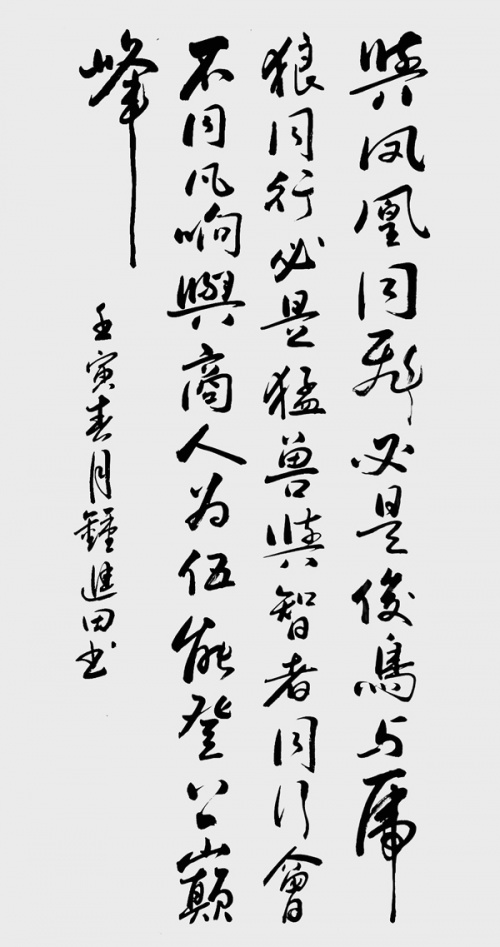 與凤凰同飛必是俊鳥与虎
狼同行必是猛兽與智者同行會
不同凡响與商人为伍能登上巔
峰
壬寅春月鍾進田书